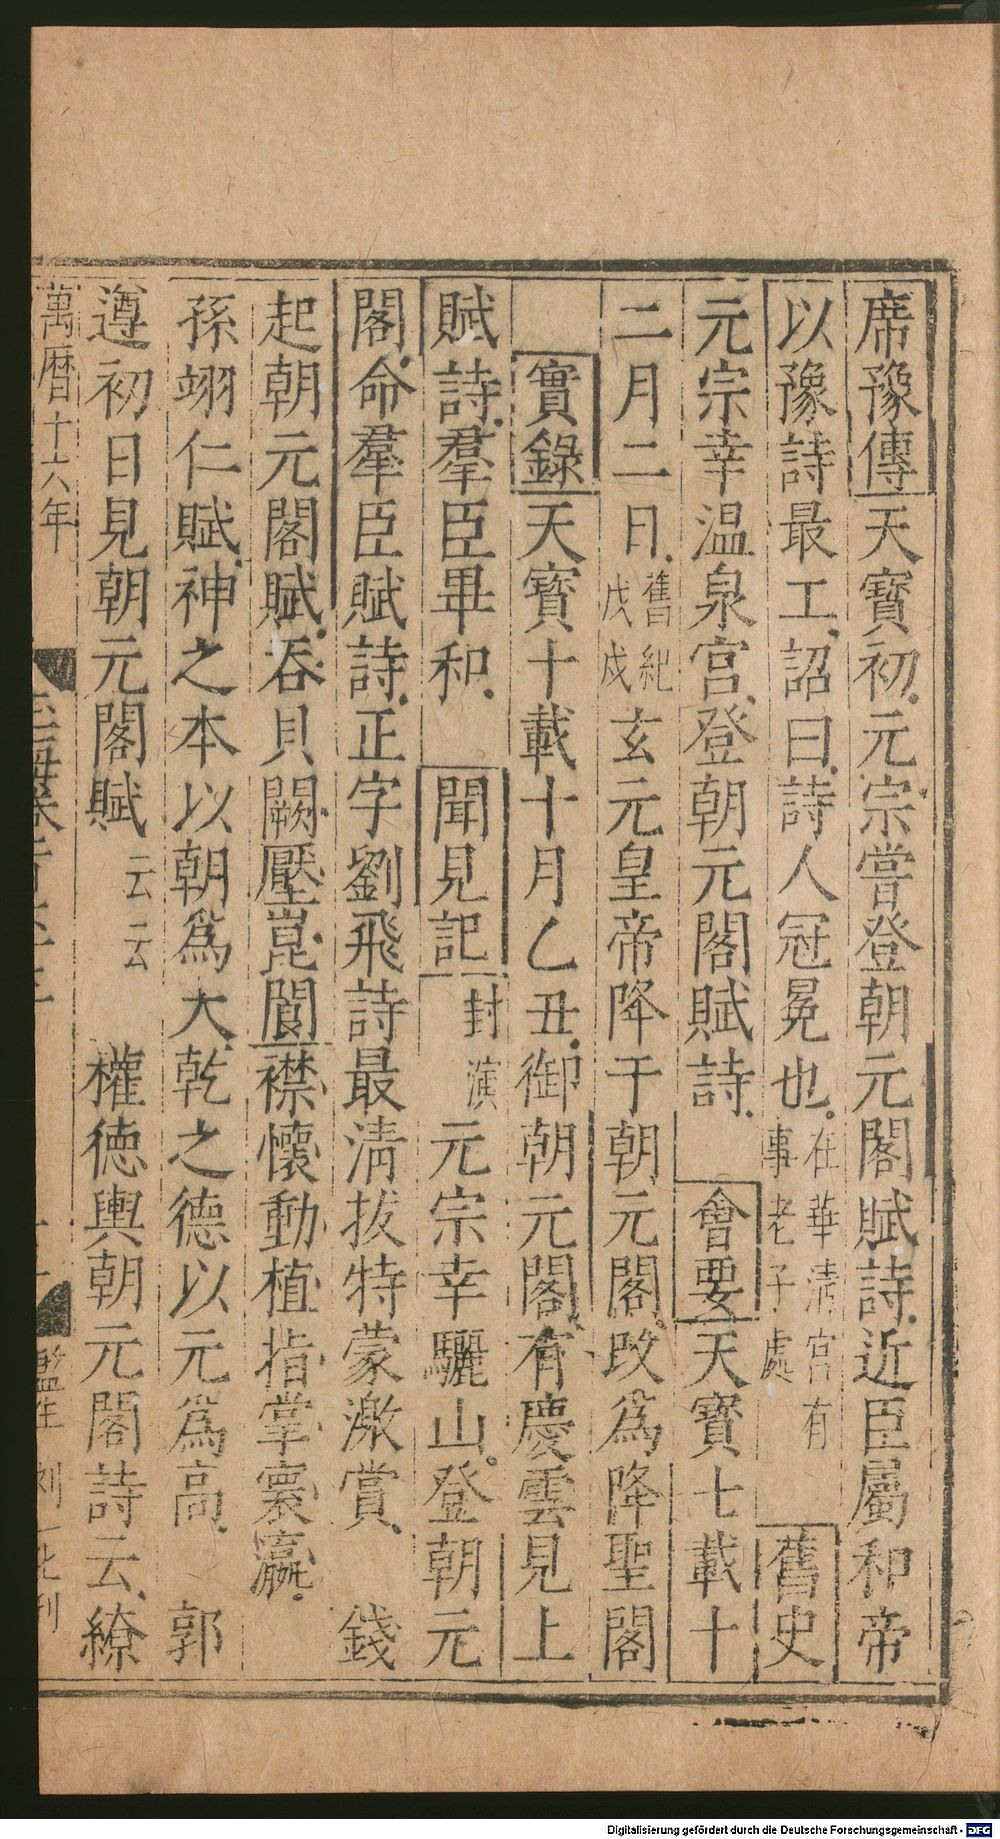 席豫傳天寶初元宗嘗登朝元閣賦詩近臣屬和帝
以豫詩最工詔曰詩人冠冕也在華清宮有事老子處舊史
元宗幸温泉宫登朝元閣賦詩會要天寶七載十
二月二日舊紀戊戌玄元皇帝降于朝元閣改爲降聖閣
實錄天寶十載十月乙丑御朝元閣有慶雲見上
賦詩羣臣畢和聞見記封演元宗幸驪山登朝元
閣命羣臣賦詩正字劉飛詩最清拔特蒙激賞錢
起朝元閣賦吞貝闕壓崑閬襟懷動植指掌寰瀛
孫翊仁賦神之本以朝爲大乾之德以元爲高郭
遵初日見朝元閣賦云云權德輿朝元閣詩云繚
萬曆十六年
監生
刊
Digitalisierung gefördert durch die Deutsche Forschungsgemeinschaft - DFG